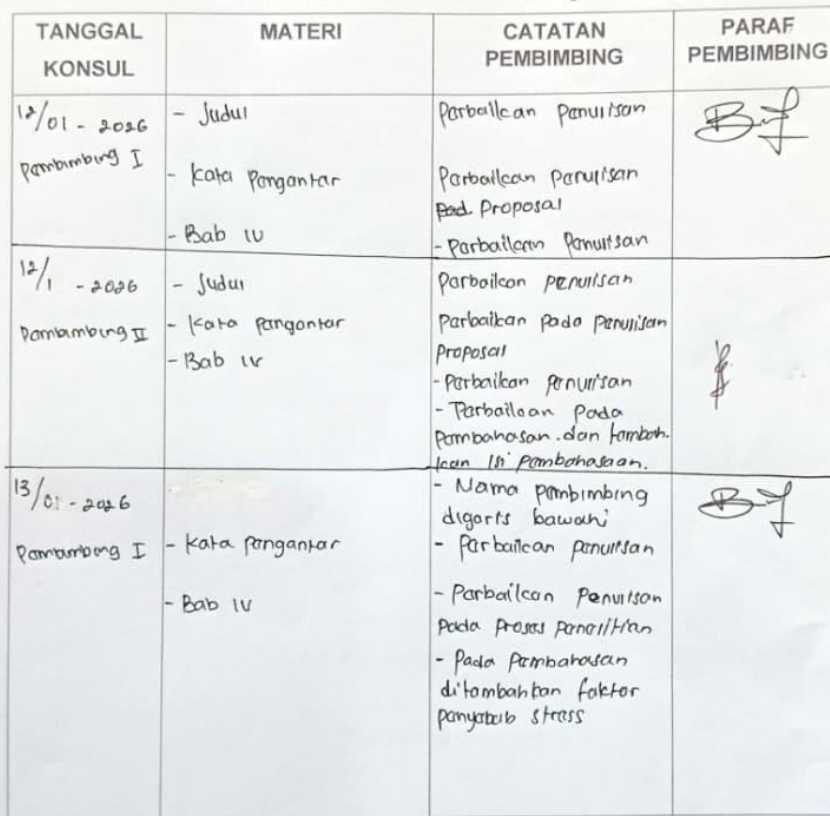 TANGGAL KONSUL
MATERI
CATATAN PEMBIMBING
PARAF PEMBIMBING
12/01 - 2026
Pembimbing I
- Judul
- Kata Pengantar
- Bab IV
Perbaikan Penulisan
Perbaikan Penulisan
pad. Proposal
- Perbaikan Penulisan
12/1 - 2026
Pembimbing II
- Judul
- Kata Pengantar
- Bab IV
Perbaikan penulisan
Perbaikan Pada Penulisan
Proposal
- Perbaikan penulisan
- Perbaikan Pada
Pembahasan. dan tambah.
kan isi pembahasaan.
13/01 - 2026
Pembimbing I
- Kata Pengantar
- Bab IV
- Nama pembimbing
digaris bawahi
- Perbaikan penulisan
- Perbaikan Penulisan
Pada Proses Penelitian
- Pada Pembahasan
ditambahkan faktor
penyebab stress